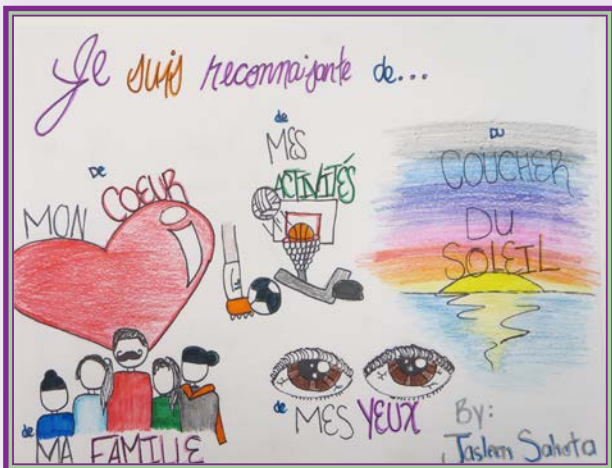 Je suis reconnaisante de...
DE
MON COEUR
de
MES
ACTIVITÉS
DU
COUCHER
DU
SOLEIL
de
MA FAMILLE
de MES YEUX
By:
Sahota